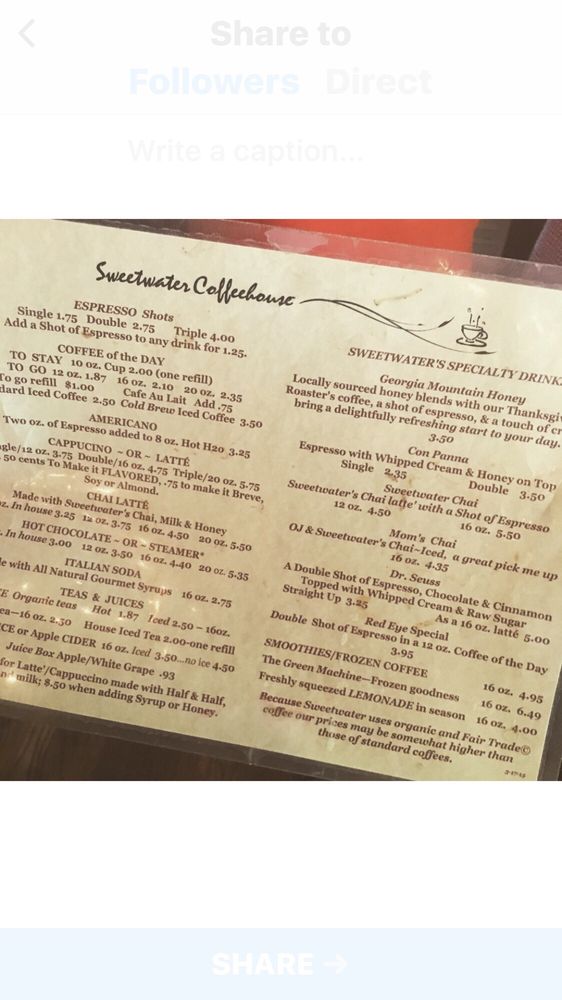 Share to
Followers Direct
Write a caption...
Sweetwater Coffeehouse
ESPRESSO Shots
Single 1.75 Double 2.75 Triple 4.00
Add a Shot of Espresso to any drink for 1.25.
COFFEE of the DAY
TO STAY 10 oz. Cup 2.00 (one refill)
TO GO 12 oz. 1.87 16 oz. 2.10 20 oz. 2.35
To go refill $1.00 Cafe Au Lait Add .75
Iced Coffee 2.50 Cold Brew Iced Coffee 3.50
AMERICANO
Two oz. of Espresso added to 8 oz. Hot H20 3.25
CAPPUCINO ~ OR ~ LATTÉ
12 oz. 3.75 Double/16 oz. 4.75 Triple/20 oz. 5.75
50 cents To Make it FLAVORED, .75 to make it Breve,
Soy or Almond.
CHAI LATTÉ
Made with Sweetwater's Chai, Milk & Honey
In house 3.25 12 oz. 3.75 16 oz. 4.50 20 oz. 5.50
HOT CHOCOLATE ~ OR ~ STEAMER*
In house 3.00 12 oz. 3.50 16 oz. 4.40 20 oz. 5.35
ITALIAN SODA
with All Natural Gourmet Syrups 16 oz. 2.75
TEAS & JUICES
Organic teas Hot 1.87 Iced 2.50 – 16oz.
16 oz. 2.50 House Iced Tea 2.00-one refill
or Apple CIDER 16 oz. Iced 3.50...no ice 4.50
Juice Box Apple/White Grape .93
for Latte'/Cappuccino made with Half & Half,
milk; $.50 when adding Syrup or Honey.
SWEETWATER'S SPECIALTY DRINK
Georgia Mountain Honey
Locally sourced honey blends with our
Roaster's coffee, a shot of espresso, & a touch of
bring a delightfully refreshing start to your day.
3.50
Con Panna
Espresso with Whipped Cream & Honey on Top
Single 2.35 Double 3.50
Sweetwater Chai
Sweetwater's Chai latte' with a Shot of Espresso
12 oz. 4.50 16 oz. 5.50
Mom's Chai
OJ & Sweetwater's Chai~Iced, a great pick me up
16 oz. 4.35
Dr. Seuss
A Double Shot of Espresso, Chocolate & Cinnamon
Topped with Whipped Cream & Raw Sugar
Straight Up 3.25 As a 16 oz. latté 5.00
Red Eye Special
Double Shot of Espresso in a 12 oz. Coffee of the Day
3.95
SMOOTHIES/FROZEN COFFEE 16 oz. 4.95
The Green Machine—Frozen goodness 16 oz. 6.49
Freshly squeezed LEMONADE in season 16 oz. 4.00
Because Sweetwater uses organic and Fair Trade©
coffee our prices may be somewhat higher than
those of standard coffees.
SHARE →